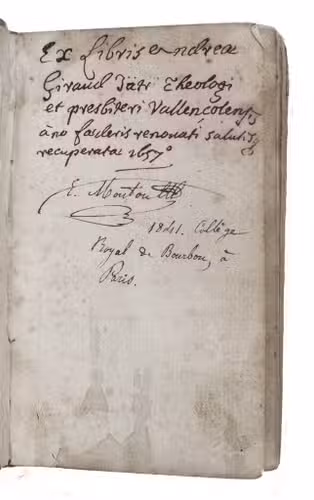 Ex Libris Andreæ
Giraud Iatri Theologi
et presbiteri Vallencolensis
āno fœderis renouati salutisq
recuperatæ 1657°
E. Mouton
1841. Collège
Royal de Bourbon, à
Paris.